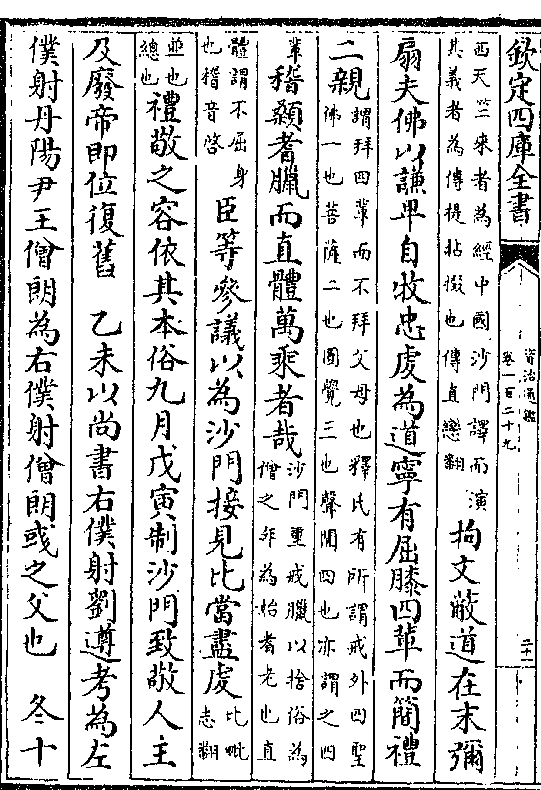 欽定四庫全書
資治通鑑
卷一百二十九
二十一
西天竺來者為經中國沙門譯而演
其義者為傳提拈掇也傳直戀翻
拘文蔽道在末彌
扇夫佛以謙卑自牧忠虔為道寧有屈膝四輩而簡禮
二親
謂拜四輩而不拜父母也釋氏有所謂戒外四聖
佛一也菩薩二也圓覺三也聲聞四也亦謂之四
輩
稽顙耆臘而直體萬乘者哉
沙門重戒臘以捨俗為
僧之年為始耆老也直
體謂不屈身
也稽音啓
臣等參議以為沙門接見比當盡虔
比毗
志翻
並也
總也
禮敬之容依其本俗九月戊寅制沙門致敬人主
及廢帝即位復舊 乙未以尚書右僕射劉遵考為左
僕射丹陽尹王僧朗為右僕射僧朗彧之父也 冬十